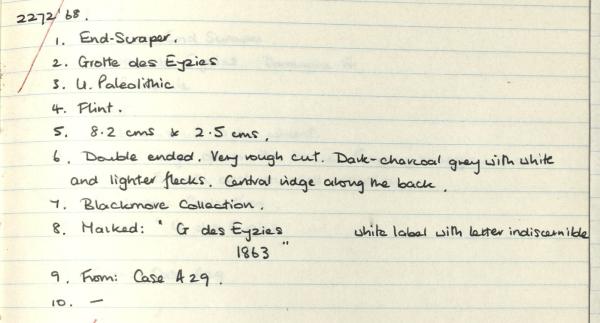 2272'68.
1. End-Scraper.
2. Grotte des Eyzies
3. U. Paleolithic
4. Flint.
5. 8.2 cms x 2.5 cms.
6. Double ended. Very rough cut. Dark-charcoal grey with white
and lighter flecks. Central ridge along the back.
7. Blackmore Collection.
8. Marked: "G des Eyzies white label with letter indiscernible
1863"
9. From: Case A29.
10. —